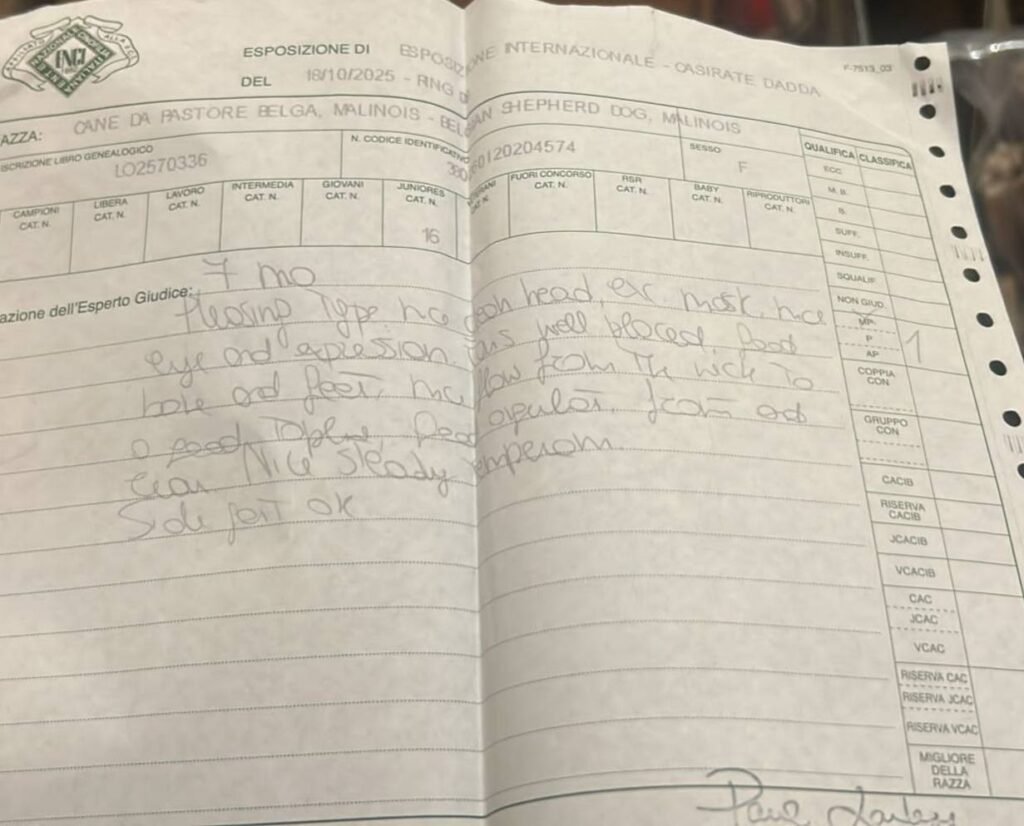 ENCI
ESPOSIZIONE DI ESPOSIZIONE INTERNAZIONALE - CASIRATE DADDA
DEL 18/10/2025 - RNG
F-7513_03
AZZA: CANE DA PASTORE BELGA, MALINOIS - BELGIAN SHEPHERD DOG, MALINOIS
ISCRIZIONE LIBRO GENEALOGICO N. CODICE IDENTIFICATIVO SESSO QUALIFICA CLASSIFICA
LO2570336 0120204574 F
CAMPIONI CAT. N.
LIBERA CAT. N.
LAVORO CAT. N.
INTERMEDIA CAT. N.
GIOVANI CAT. N.
JUNIORES CAT. N.
16
CAT. N.
FUORI CONCORSO CAT. N.
RSR CAT. N.
BABY CAT. N.
RIPRODUTTORI CAT. N.
7 mo
azione dell'Esperto Giudice:
Pleasing Type nice clean head, exc. mask, nice
eye and expression. Ears well placed. Good
bone and feet, nice flow from The neck To
a good Topline. Good from and
rear Nice steady temperam.
Side gait ok
ECC.
M. B.
B.
SUFF.
INSUFF.
SQUALIF.
NON GIUD.
MP.
P
AP
1
COPPIA CON
GRUPPO CON
CACIB
RISERVA CACIB
JCACIB
VCACIB
CAC
JCAC
VCAC
RISERVA CAC
RISERVA JCAC
RISERVA VCAC
MIGLIORE DELLA RAZZA
Paul